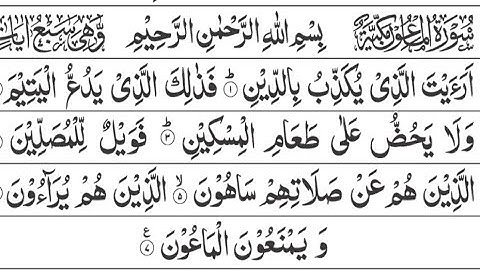 سُوْرَةُ الْمَاعُوْنِ مَكِّيَّةٌ بِسْمِ اللهِ الرَّحْمٰنِ الرَّحِيْمِ وَّهِيَ سَبْعُ اٰيَاتٍ
اَرَءَيْتَ الَّذِىْ يُكَذِّبُ بِالدِّيْنِ ؕ﴿۱﴾ فَذٰلِكَ الَّذِىْ يَدُعُّ الْيَتِيْمَ
وَلَا يَحُضُّ عَلٰى طَعَامِ الْمِسْكِيْنِ ؕ﴿۳﴾ فَوَيْلٌ لِّلْمُصَلِّيْنَ
الَّذِيْنَ هُمْ عَنْ صَلَاتِهِمْ سَاهُوْنَ ۙ﴿۵﴾ الَّذِيْنَ هُمْ يُرَآءُوْنَ
وَ يَمْنَعُوْنَ الْمَاعُوْنَ ﴿۷﴾ ع